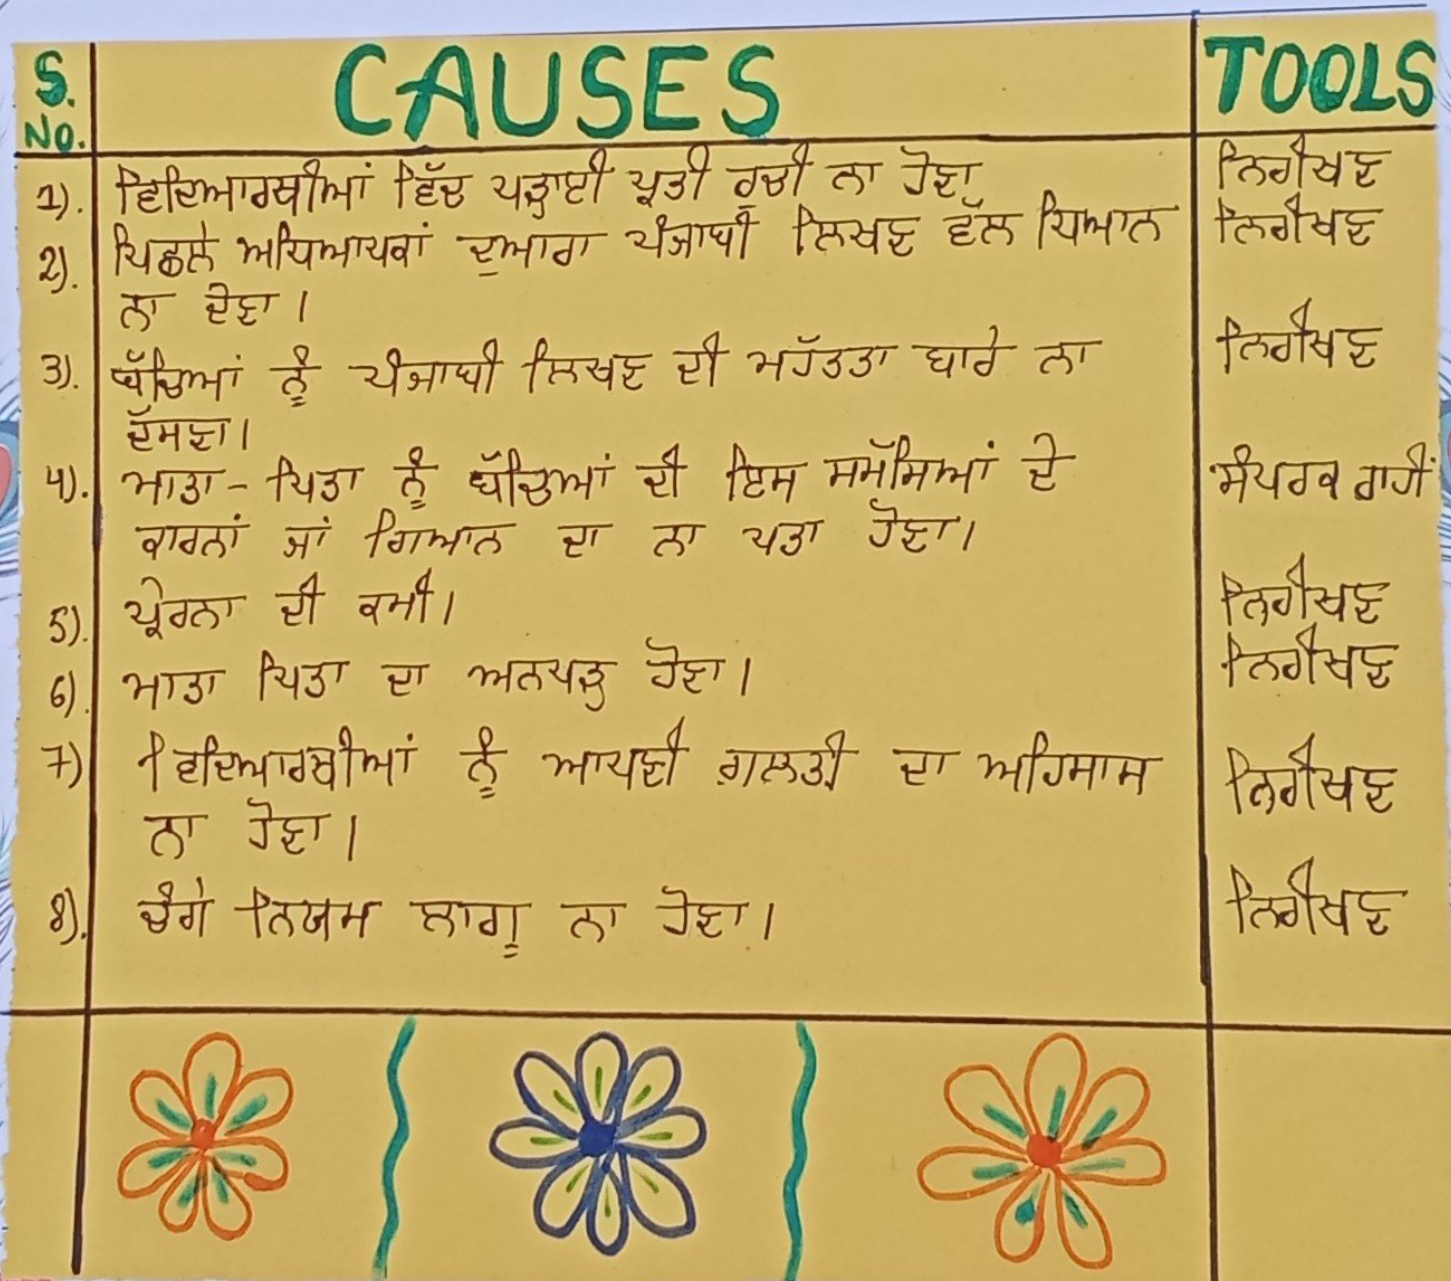 S. No. CAUSES TOOLS
1). ਵਿਦਿਆਰਥੀਆਂ ਵਿੱਚ ਪੜ੍ਹਾਈ ਪ੍ਰਤੀ ਰੁਚੀ ਨਾ ਹੋਣਾ ਨਿਰੀਖਣ
2). ਪਿਛਲੇ ਅਧਿਆਪਕਾਂ ਦੁਆਰਾ ਪੰਜਾਬੀ ਲਿਖਣ ਵੱਲ ਧਿਆਨ ਨਿਰੀਖਣ
ਨਾ ਦੇਣਾ।
3). ਬੱਚਿਆਂ ਨੂੰ ਪੰਜਾਬੀ ਲਿਖਣ ਦੀ ਮਹੱਤਤਾ ਬਾਰੇ ਨਾ ਨਿਰੀਖਣ
ਦੱਸਣਾ।
4). ਮਾਤਾ - ਪਿਤਾ ਨੂੰ ਬੱਚਿਆਂ ਦੀ ਇਸ ਸਮੱਸਿਆਂ ਦੇ ਸੰਪਰਕ ਰਾਹੀਂ
ਕਾਰਨਾਂ ਜਾਂ ਗਿਆਨ ਦਾ ਨਾ ਪਤਾ ਹੋਣਾ।
5). ਪ੍ਰੇਰਨਾ ਦੀ ਕਮੀ। ਨਿਰੀਖਣ
6). ਮਾਤਾ ਪਿਤਾ ਦਾ ਅਨਪੜ੍ਹ ਹੋਣਾ। ਨਿਰੀਖਣ
7) ਵਿਦਿਆਰਥੀਆਂ ਨੂੰ ਆਪਣੀ ਗ਼ਲਤੀ ਦਾ ਅਹਿਸਾਸ ਨਿਰੀਖਣ
ਨਾ ਹੋਣਾ।
8). ਚੰਗੇ ਨਿਯਮ ਲਾਗੂ ਨਾ ਹੋਣਾ। ਨਿਰੀਖਣ